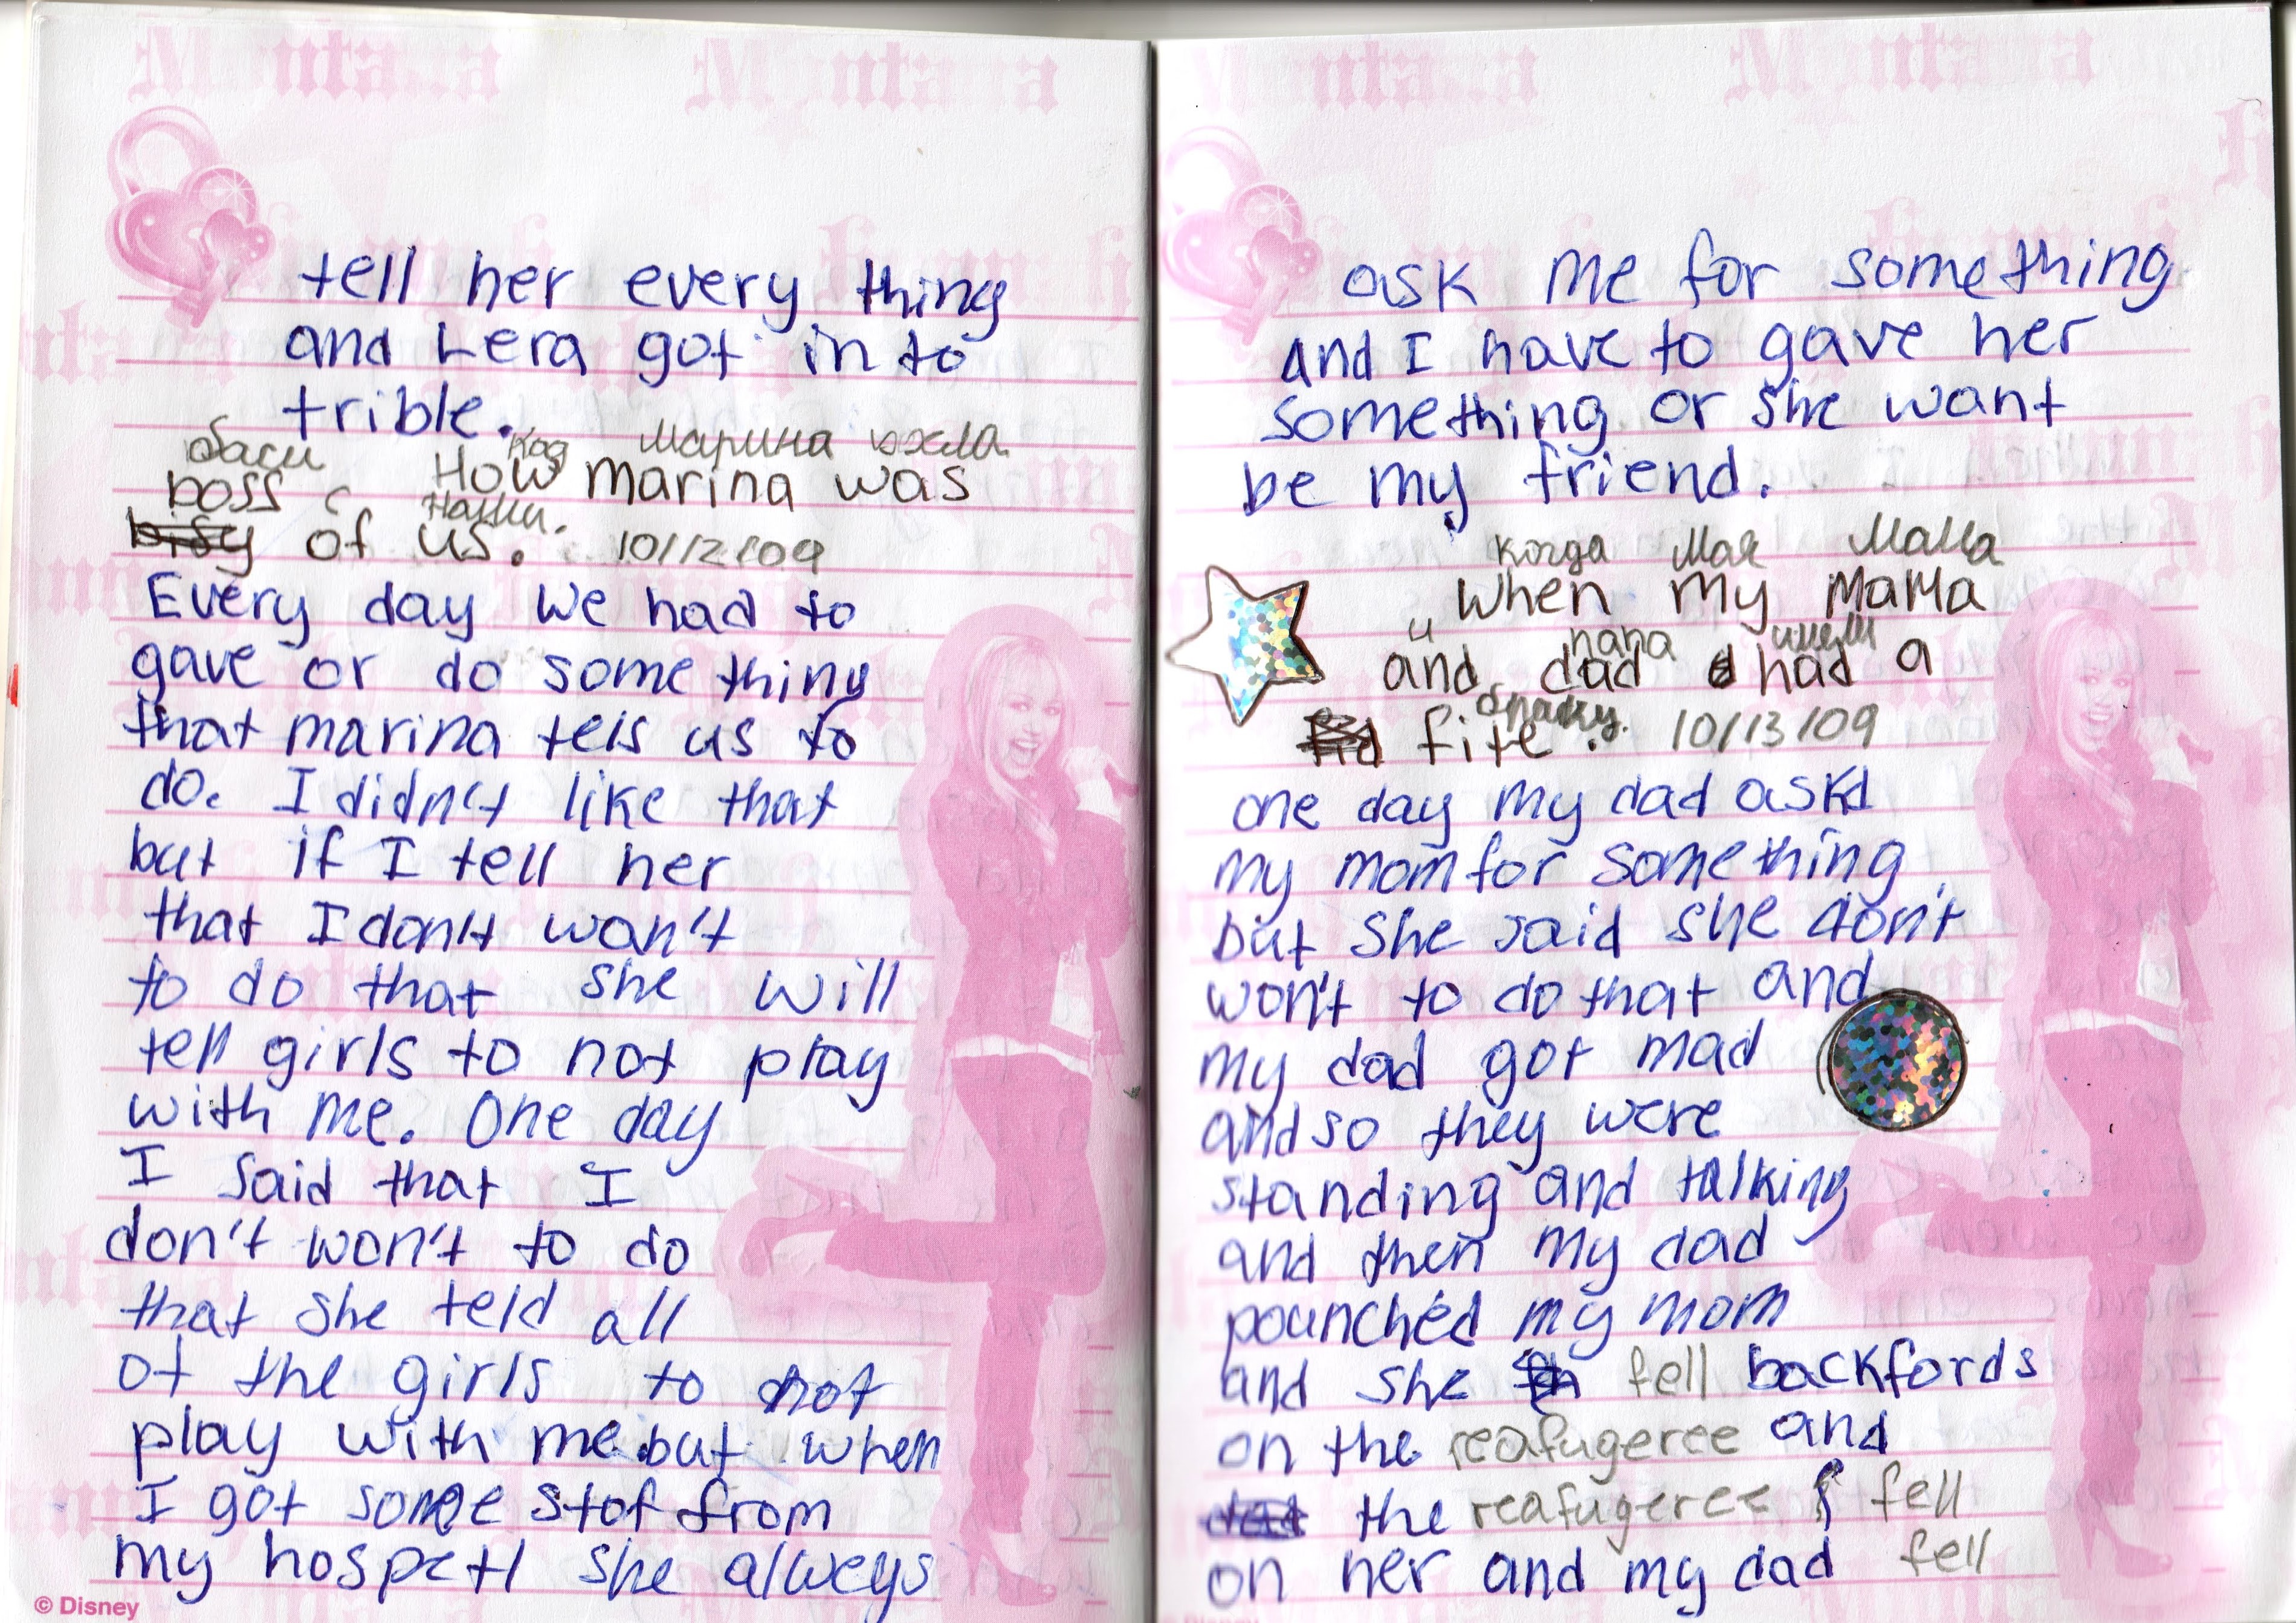 tell her every thing
and Lera got in to
trible.
Марина
How marina was
boss
of us. 10/12/09
Every day we had to
gave or do some thing
that marina tels us to
do. I didn't like that
but if I tell her
that I don't won't
to do that she will
tell girls to not play
with me. One day
I said that I
don't won't to do
that she teld all
of the girls to not
play with me but when
I got some stof from
my hospetl she alweys
© Disney
ask me for something
and I have to gave her
something or she want
be my friend.
когда Моя Мама
When my Mama
и папа
and dad had a
fite. 10/13/09
one day my dad askd
my mom for something,
but she said she don't
won't to do that and
my dad got mad
and so they were
standing and talking
and then my dad
pounched my mom
and she fell backfords
on the reafugeree and
the reafugeree fell
on her and my dad fell